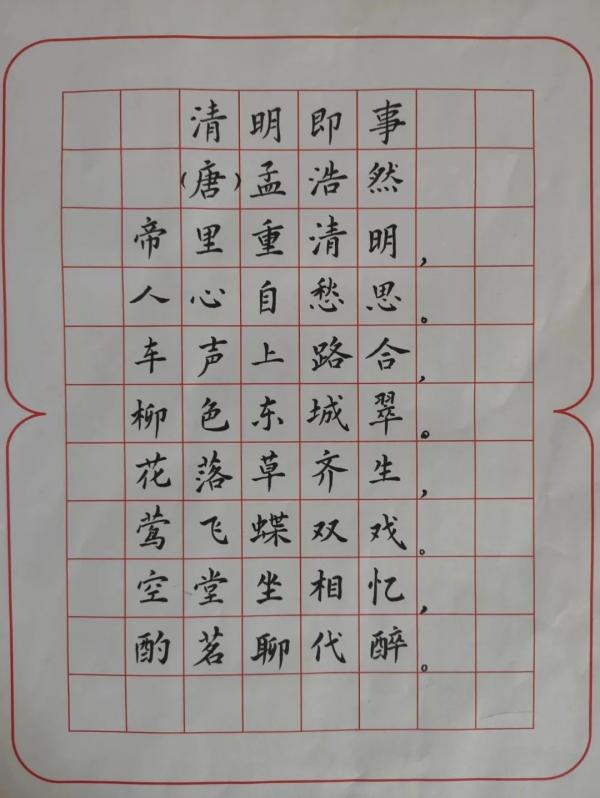 清明即事
(唐)孟浩然
帝里重清明，
人心自愁思。
车声上路合，
柳色东城翠。
花落草齐生，
莺飞蝶双戏。
空堂坐相忆，
酌茗聊代醉。